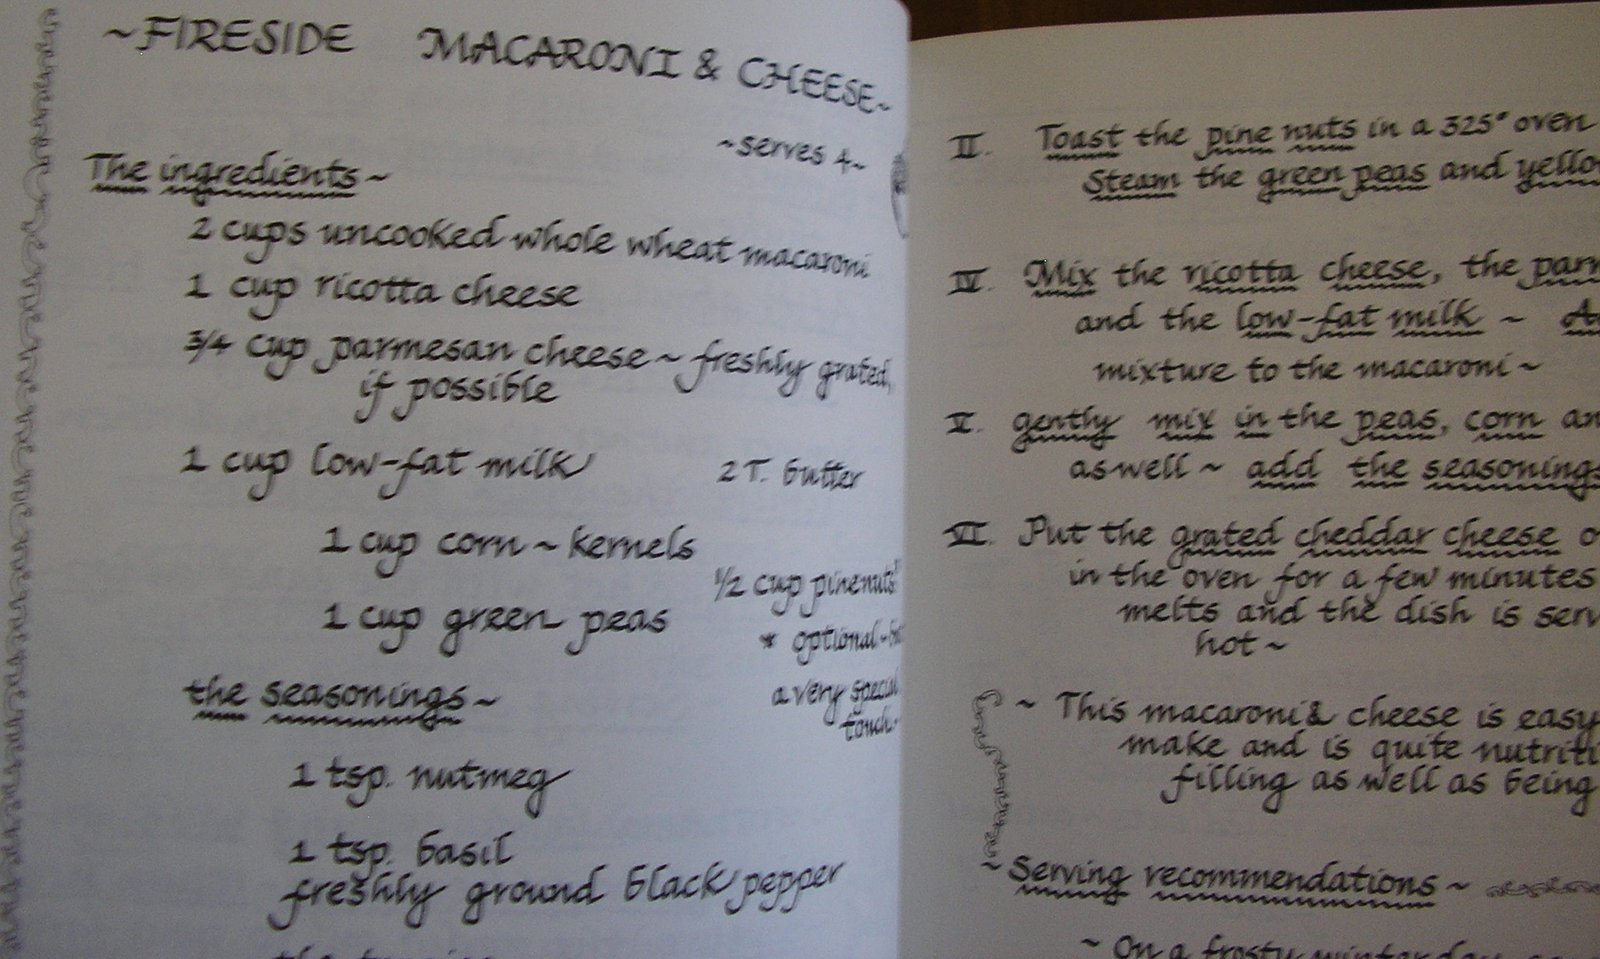 ~FIRESIDE MACARONI & CHEESE~
~serves 4~
The ingredients~
2 cups uncooked whole wheat macaroni
1 cup ricotta cheese
3/4 cup parmesan cheese ~ freshly grated,
if possible
1 cup low-fat milk
2 T. butter
1 cup corn ~ kernels
1/2 cup pinenuts*
1 cup green peas
* optional ~
a very special
touch~
the seasonings~
1 tsp. nutmeg
1 tsp. basil
freshly ground black pepper
II. Toast the pine nuts in a 325° oven
Steam the green peas and
IV. Mix the ricotta cheese, the
and the low-fat milk ~
mixture to the macaroni ~
V. gently mix in the peas, corn
as well ~ add the seasonings
VI. Put the grated cheddar cheese
in the oven for a few minutes
melts and the dish is
hot ~
~ This macaroni & cheese is easy
make and is quite
filling as well as being
~ Serving recommendations ~
~ On a frosty winter day